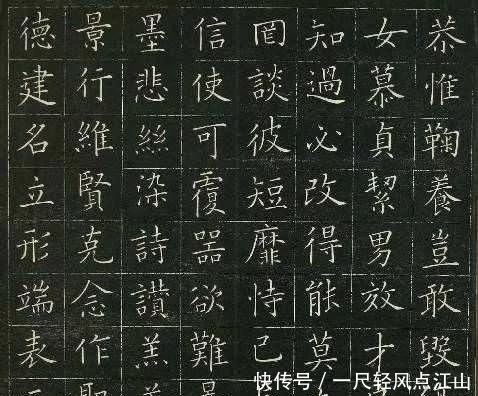 恭惟鞠養豈敢毀
女慕貞絜男效才
知過必改得能莫
罔談彼短靡恃己
信使可覆器欲難
墨悲絲染詩讚羔
景行維賢克念作
德建名立形端表
快传号／一尺轻风点江山